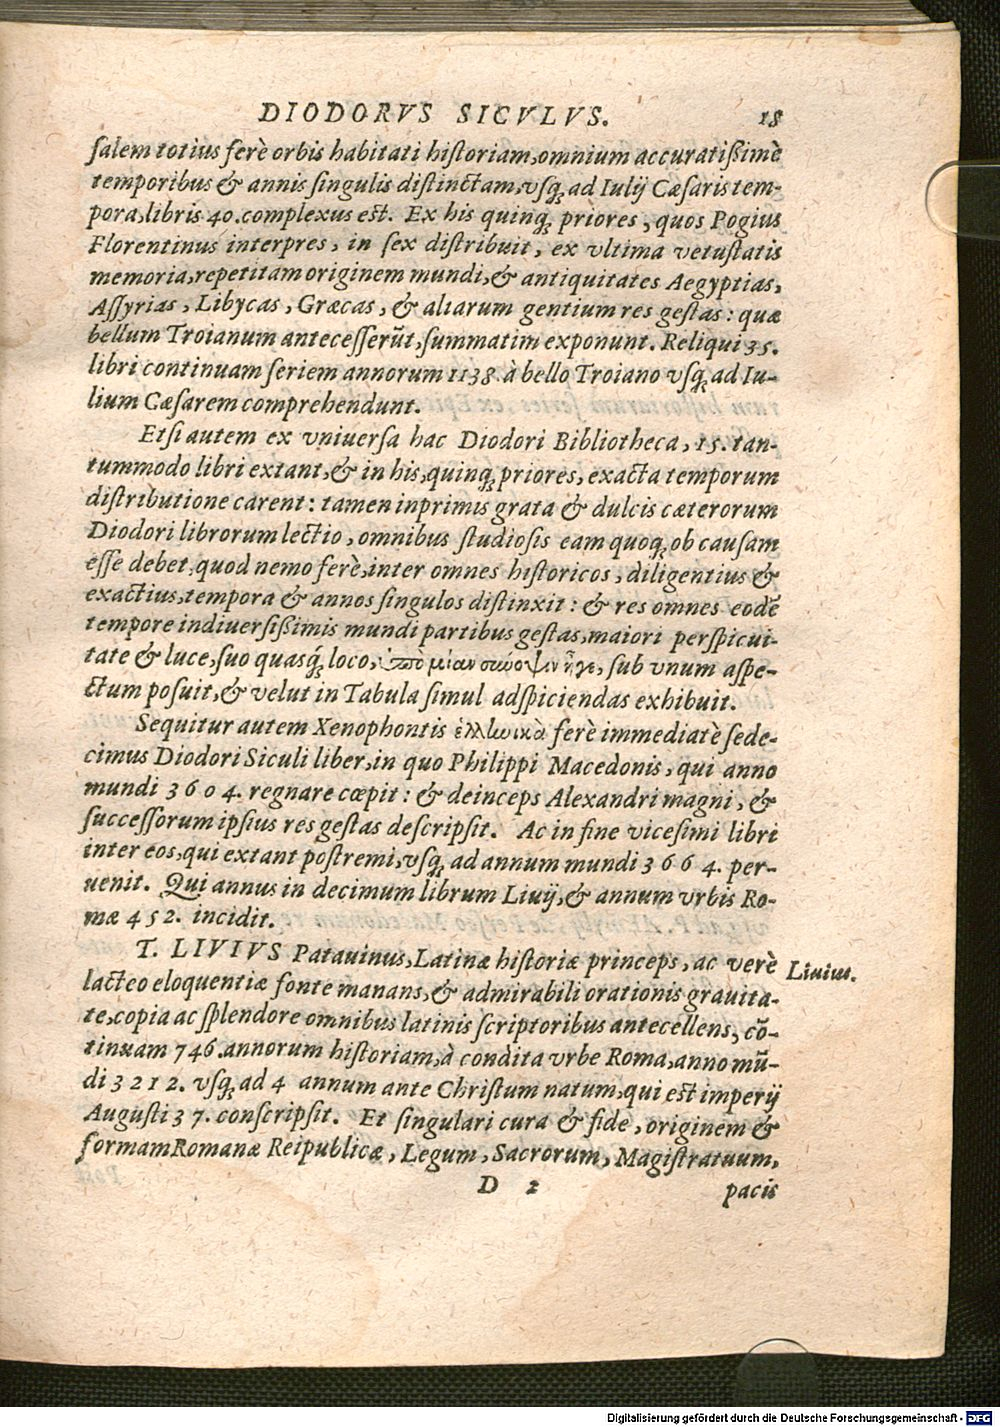 DIODORVS SICVLVS. 18
ſalem totius ferè orbis habitati hiſtoriam, omnium accuratißimè
temporibus & annis ſingulis diſtinctam, vſq́; ad Iulij Cæſaris tem-
pora, libris 40. complexus est. Ex his quinq́; priores, quos Pogius
Florentinus interpres, in ſex diſtribuit, ex vltima vetuſtatis
memoria, repetitam originem mundi, & antiquitates Aegyptias,
Aſſyrias, Libycas, Græcas, & aliarum gentium res geſtas: quæ
bellum Troianum anteceſſerũt, ſummatim exponunt. Reliqui 35.
libri continuam ſeriem annorum 1138. à bello Troiano vſq́; ad Iu-
lium Cæſarem comprehendunt.
Etſi autem ex vniuerſa hac Diodori Bibliotheca, 15. tan-
tummodo libri extant, & in his, quinq́; priores, exacta temporum
diſtributione carent: tamen inprimis grata & dulcis cæterorum
Diodori librorum lectio, omnibus ſtudioſis eam quoq́; ob cauſam
eſſe debet, quod nemo ferè, inter omnes hiſtoricos, diligentius &
exactius, tempora & annos ſingulos diſtinxit: & res omnes eodē
tempore in diuerſißimis mundi partibus geſtas, maiori perſpicui-
tate & luce, ſuo quasq́; loco, ὑπὸ μίαν σύνοψιν ἦγε, ſub vnum aſpe-
ctum poſuit, & velut in Tabula ſimul adſpiciendas exhibuit.
Sequitur autem Xenophontis ἑλληνικὰ ferè immediatè ſede-
cimus Diodori Siculi liber, in quo Philippi Macedonis, qui anno
mundi 3604. regnare cœpit: & deinceps Alexandri magni, &
ſucceſſorum ipſius res geſtas deſcripſit. Ac in fine viceſimi libri
inter eos, qui extant poſtremi, vſq́; ad annum mundi 3664. per-
uenit. Qui annus in decimum librum Liuij, & annum vrbis Ro-
mæ 452. incidit.
T. LIVIVS Patauinus, Latinæ hiſtoriæ princeps, ac verè
Liuius.
lacteo eloquentiæ fonte manans, & admirabili orationis grauita-
te, copia ac ſplendore omnibus latinis ſcriptoribus antecellens, cō-
tinuam 746. annorum hiſtoriam, à condita vrbe Roma, anno mū-
di 3212. vſq́; ad 4 annum ante Chriſtum natum, qui est imperij
Auguſti 37. conſcripſit. Et ſingulari cura & fide, originem &
formam Romanæ Reipublicæ, Legum, Sacrorum, Magiſtratuum,
D 2 pacis
Digitalisierung gefördert durch die Deutsche Forschungsgemeinschaft - DFG